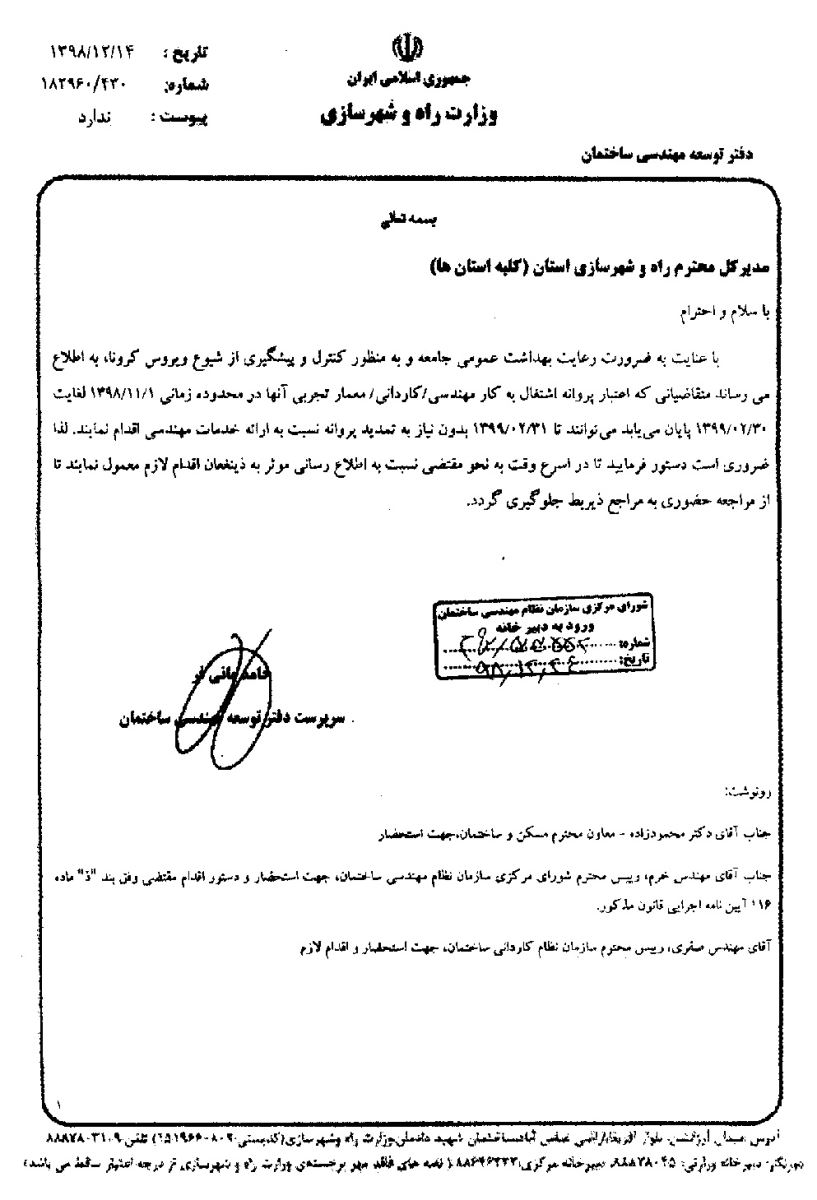 جمهوری اسلامی ایران
وزارت راه و شهرسازی
تاریخ : ۱۳۹۸/۱۲/۱۴
شماره: ۱۸۲۹۶۰/۴۳۰
پیوست : ندارد
دفتر توسعه مهندسی ساختمان
بسمه تعالی
مدیرکل محترم راه و شهرسازی استان (کلیه استان ها)
با سلام و احترام
با عنایت به ضرورت رعایت بهداشت عمومی جامعه و به منظور کنترل و پیشگیری از شیوع ویروس کرونا، به اطلاع
می رساند متقاضیانی که اعتبار پروانه اشتغال به کار مهندسی/کاردانی/ معمار تجربی آنها در محدوده زمانی ۱۳۹۸/۱۱/۱ لغایت
۱۳۹۹/۰۲/۳۰ پایان می‌یابد می‌توانند تا ۱۳۹۹/۰۲/۳۱ بدون نیاز به تمدید پروانه نسبت به ارائه خدمات مهندسی اقدام نمایند. لذا
ضروری است دستور فرمایید تا در اسرع وقت به نحو مقتضی نسبت به اطلاع رسانی موثر به ذینفعان اقدام لازم معمول نمایند تا
از مراجعه حضوری به مراجع ذیربط جلوگیری گردد.
شورای مرکزی سازمان نظام مهندسی ساختمان
ورود به دبیر خانه
شماره:
تاریخ:
حامد مانی فر
سرپرست دفتر توسعه مهندسی ساختمان
رونوشت:
جناب آقای دکتر محمودزاده - معاون محترم مسکن و ساختمان،جهت استحضار
جناب آقای مهندس خرم، رییس محترم شورای مرکزی سازمان نظام مهندسی ساختمان، جهت استحضار و دستور اقدام مقتضی وفق بند "ذ" ماده
۱۱۶ آیین نامه اجرایی قانون مذکور.
آقای مهندس صفری، رییس محترم سازمان نظام کاردانی ساختمان، جهت استحضار و اقدام لازم
۱
آدرس :میدان آرژانتین، بلوار آفریقا،اراضی عباس آباد،ساختمان شهید دادمان،وزارت راه وشهرسازی(کدپستی: تلفن ۸۸۸۷۸۰۳۱-۹
دورنگار: دبیرخانه وزارتی: ۸۸۸۷۸۰۴۵، دبیرخانه مرکزی: ۸۸۶۴۶۳۳۳ ( نامه های فاقد مهر برجسته‌ی وزارت راه و شهرسازی از درجه اعتبار ساقط می باشد)